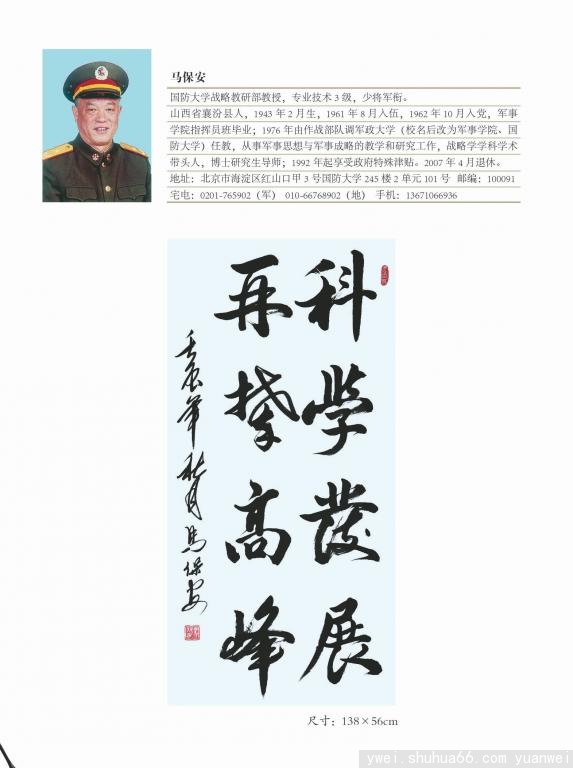 马保安
国防大学战略教研部教授，专业技术 3 级，少将军衔。
山西省襄汾县人，1943 年 2 月生，1961 年 8 月入伍，1962 年 10 月入党，军事
学院指挥员班毕业；1976 年由作战部队调军政大学（校名后改为军事学院、国
防大学）任教，从事军事思想与军事成略的教学和研究工作，战略学学科学术
带头人，博士研究生导师；1992 年起享受政府特殊津贴。2007 年 4 月退休。
地址：北京市海淀区红山口甲 3 号国防大学 245 楼 2 单元 101 号 邮编：100091
宅电：0201-765902（军） 010-66768902（地） 手机：13671066936
科学发展
再攀高峰
壬辰年秋月馬保安
尺寸：138×56cm
ywei.shuhua66.com yuanwei